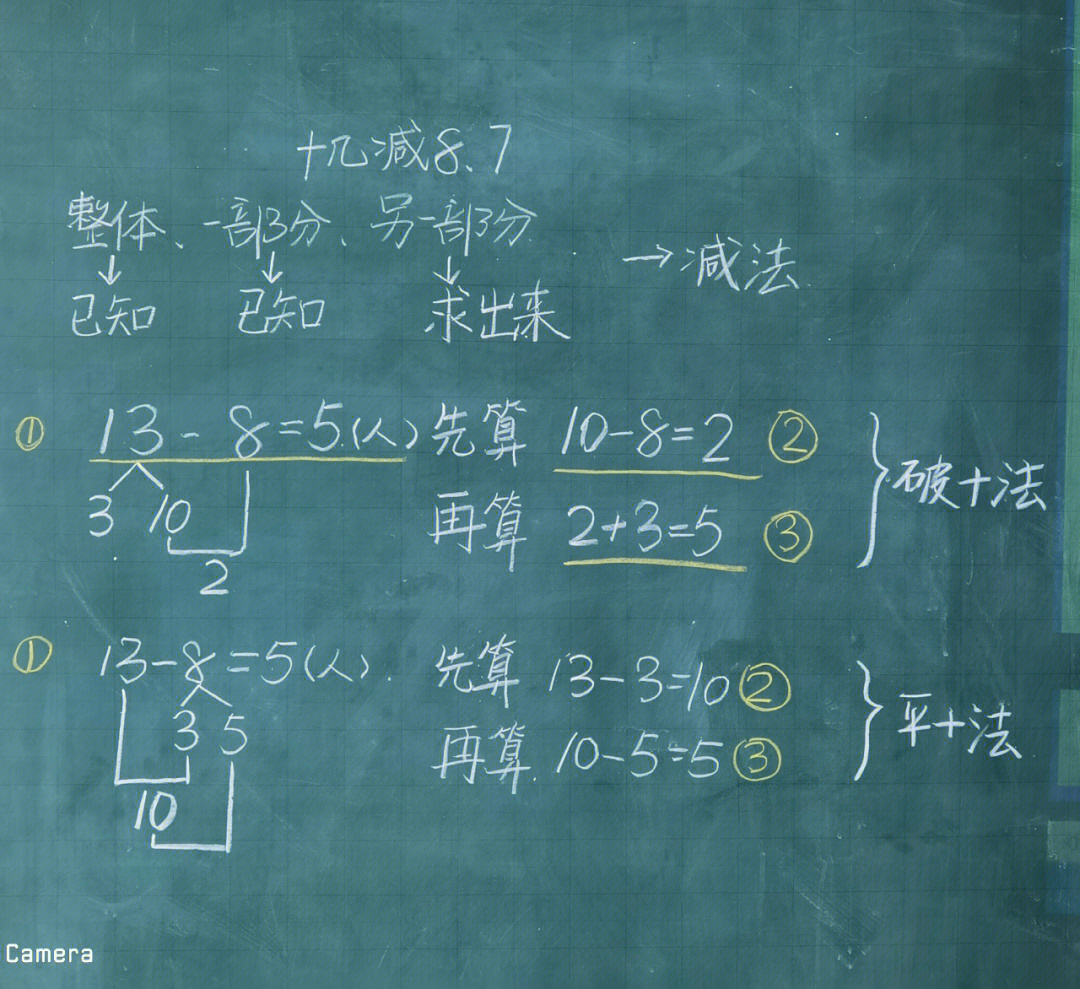 十几减8、7
整体、一部分、另一部分 →减法
↓ ↓ ↓
已知 已知 求出来
① 13-8=5(人) 先算 10-8=2 ② } 破十法
3 10 再算 2+3=5 ③
2
① 13-8=5(人). 先算 13-3=10 ② } 平十法
3 5 再算. 10-5=5 ③
10
Camera